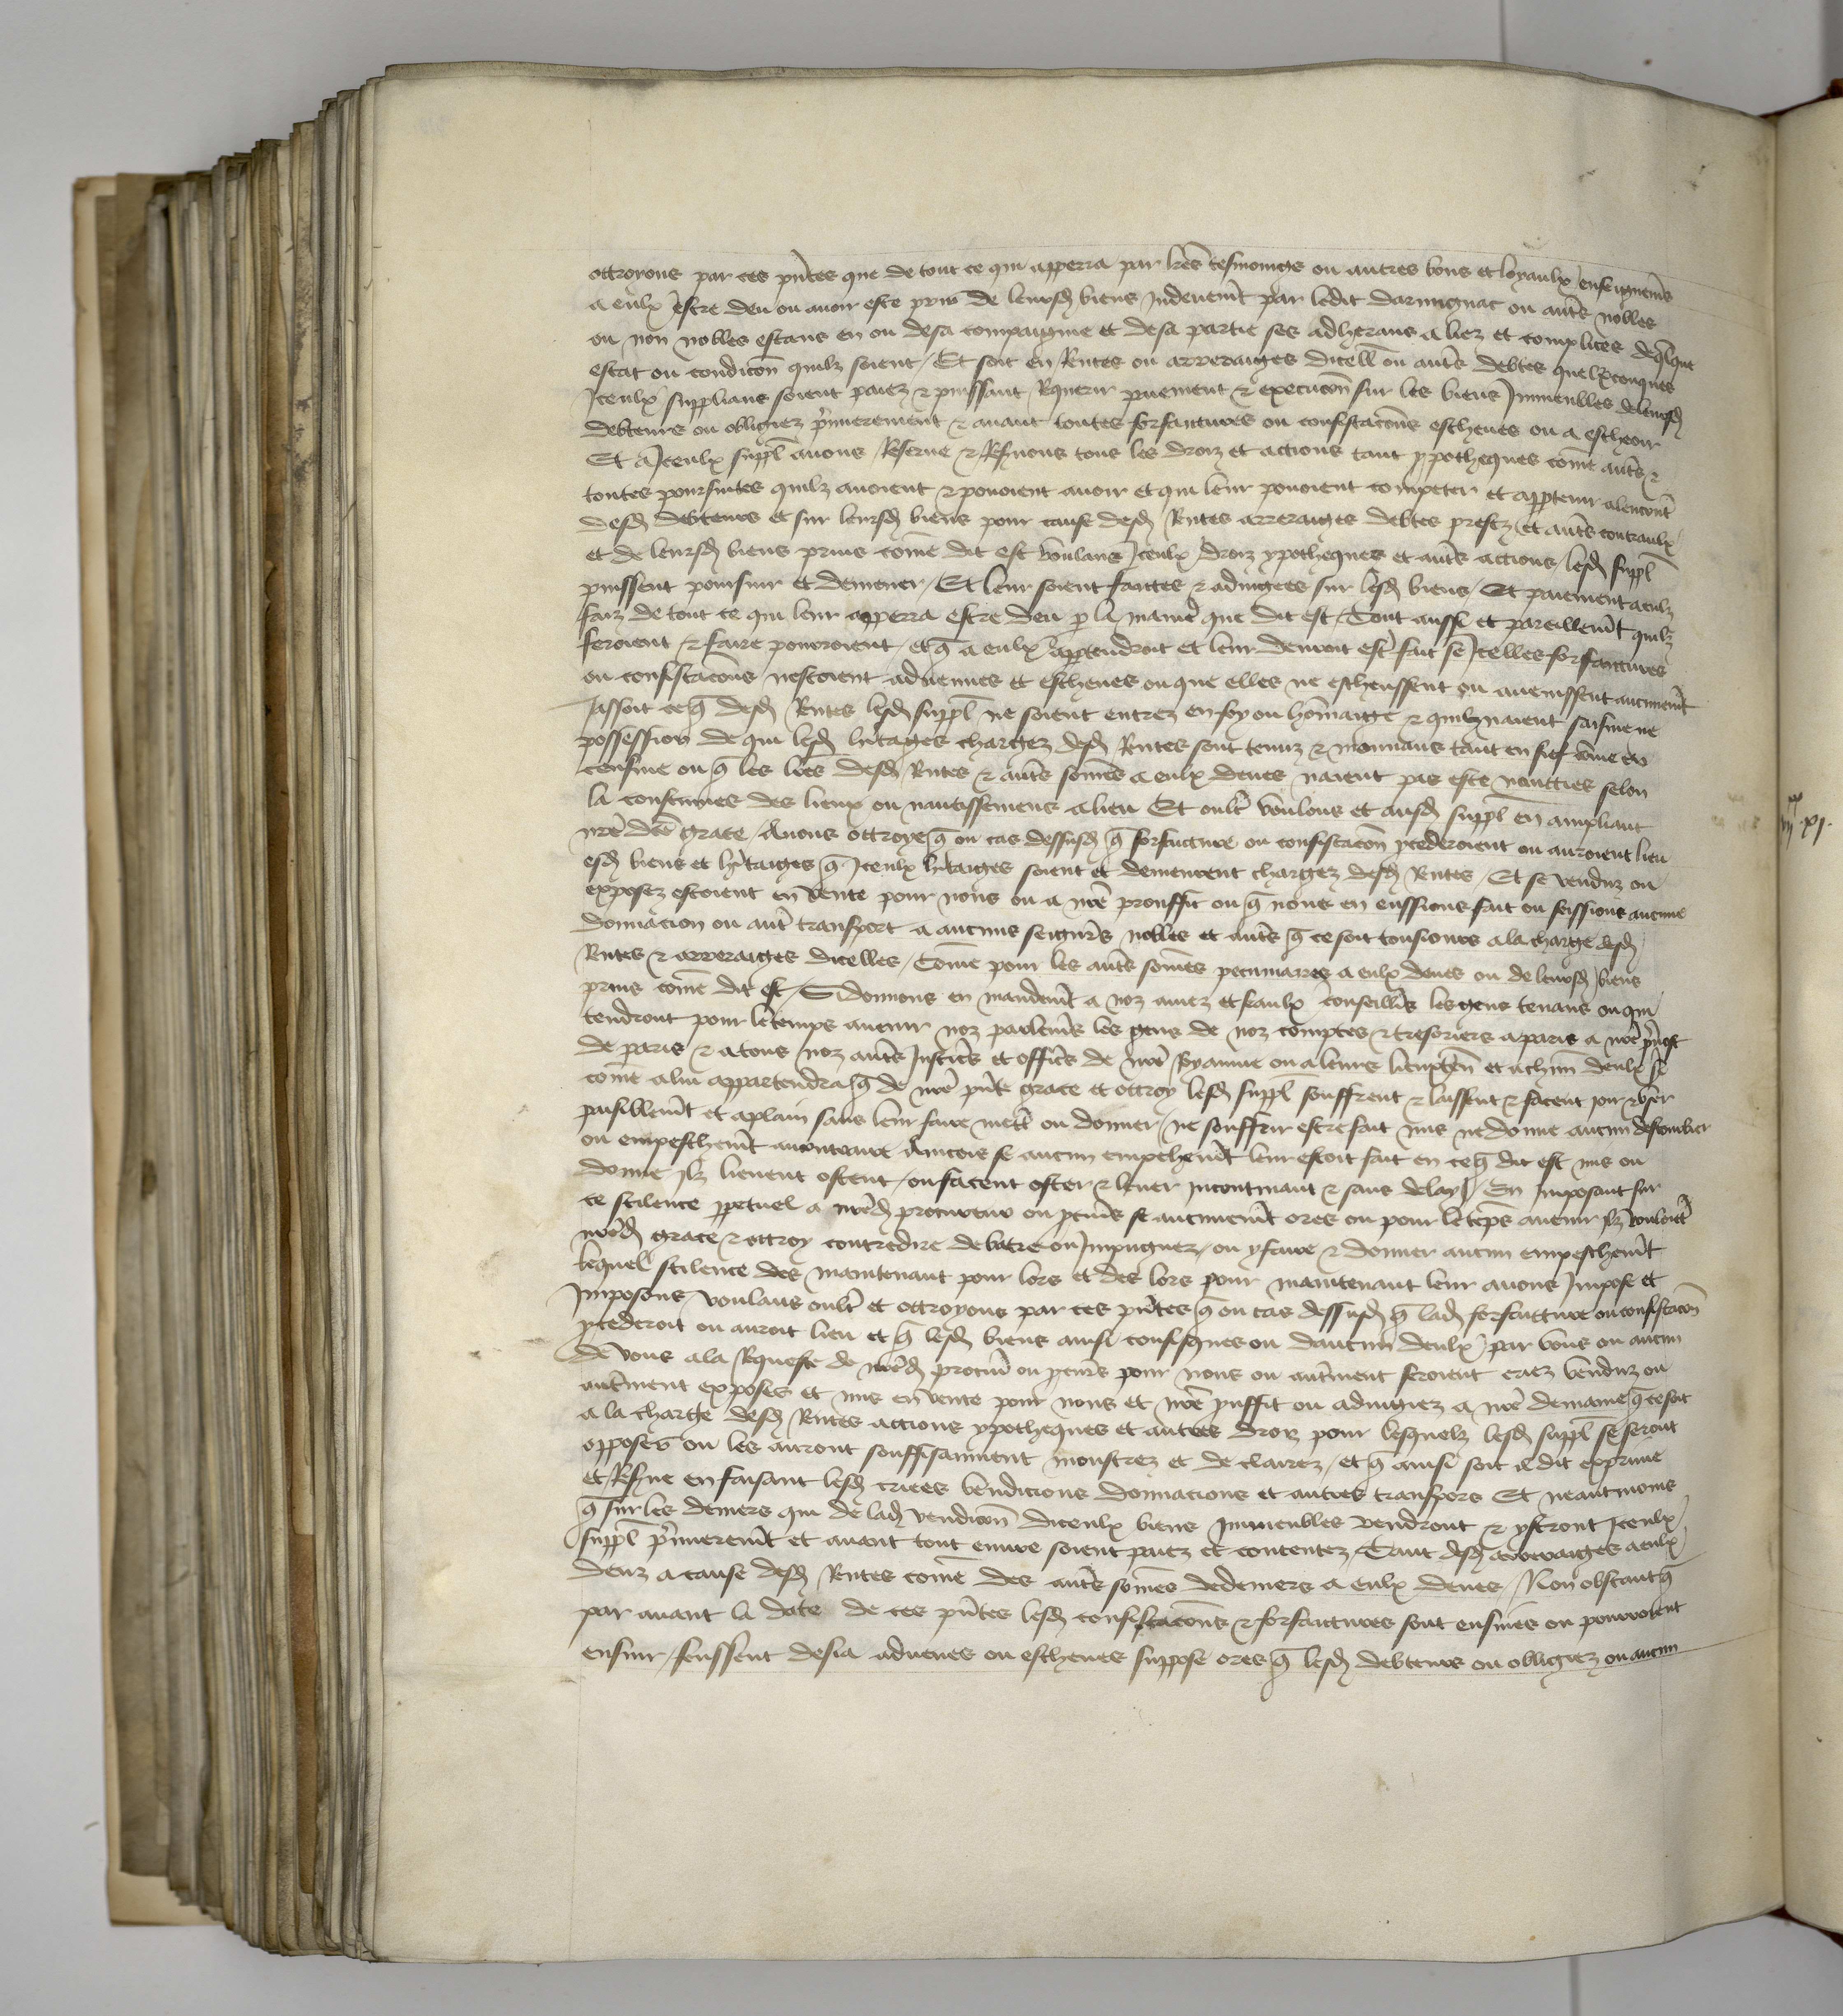 ottroyons par ces pñtes que de tout ce qui apperra par lres tesmoings ou autres bons et loyaulx enseignemẽs
a eulx estre deu ou avoir este prins de leursd biens Indeuemt par ledit darmignac ou autẽs nobles
ou non nobles estans en ou de sa compaignie et de sa partie ses adherans aliez et complices de qlque
estat ou condicõn quilz soient / Et soit en Rentes ou arreraiges dicell ou autẽs debtes quelxconques
Iceulx supplians soient paiez & puissant Requerir paiement & execucõn sur les biens Immeubles de leursd
debteurs ou obligiez p̃mierement & avant toutes forfaictures ou confiscacõns escheues ou a escheoir
Et a Iceulx suppl avons Reserve & Reservons tous les droiz et actions tant ypotheques cõme autẽs &
toutes poursuites quilz avoient & povoient avoir et qui leur povoient competer et appartenir alencont̃
desd debteurs et sur leursd biens pour cause desd Rentes arreraiges debtes prestz et autẽs contraulx
et de leursd biens prins cõme dit est voulans Iceulx droiz ypotheques et autẽs actions / lesd suppl
puissent poursuir et demener / Et leur soient faictes & adiugees sur lesd biens / Et paiement a eulx
faiz de tout ce qui leur apperra estre deu p la manie que dit est / Tout aussi et pareillemt quilz
feroient & faire pourroient / et q̃ a eulx appartendroit et leur devroit estre fait se Icelles forfaictures
ou confiscacõns nestoient advenues et escheues ou que elles ne escheussent ou avenissent aucunemt
Jassoit ce q̃ desd Rentes lesd suppl ne soient entrez en foy ou hõmaige & quilz naient saisine ne
possession de qui lesd hitages chargez desd Rentes sont tenuz & mouvans tant en fief cõme en
censive ou q̃ les lres desd Rentes & autẽs sõmes a eulx deues naient pas este nanties selon
la coustumes des lieux ou nantissemens a lieu Et oult̃ voulons et ausd suppl en ampliant
nre dce grace / Avons ottroye q̃ ou cas dessusd q̃ forfaicture ou confiscacõn ycederoient ou auroient lieu
esd biens et hitaiges q̃ Iceulx hitaiges soient et demeurent chargez desd Rentes / Et se venduz ou
exposez estoient en vente pour nous ou a nre prouffit ou q̃ nous en eussions fait ou feissions aucune
donnacion ou aut̃ transport a aucuns seigneurs nobles et autẽs q̃ ce soit tousiours a la charge desd
Rentes & arreraiges dicelles / Cõme pour les autẽs sõmes pecuniaires a eulx deues ou de leursd biens
prins cõme dit est / Si donnons en mandemt a noz amez et feaulx conseillers les gens tenans ou qui
tendront pour le temps avenir noz parlemẽs les gens de noz comptes & tresoriers a paris a nre p̃vost
de paris & a tous noz autẽs Iusticiers et officiers de nre Royaume ou a leurs lieuxten et a chun deulx si
cõme a lui appartendra q̃ de nre pñte grace et ottroy lesd suppl souffrent & laissent & facent ioir & user
paisiblemt et a plain sans leur faire mett̃ ou donner / ne souffrir estre fait mis ne donne aucun destourbier
ou empeschemt au contraire Aincois se aucun empeschemt leur estoit fait en ce q̃ dit est mis ou
donne Ilz lievent ostent / ou facent oster & lever Incontinant & sans delay / En Imposant sur
ce scilence ppetuel a nred procureur ou pcurs se aucunemt ores ou pour le temps avenir Ilz vouloient
nred grace & ottroy contredire debatre ou Impugner / ou y faire & donner aucun empeschemt
lequel scilence des maintenant pour lors et des lors pour maintenant leur avons Impose et
Imposons voulans oult̃ et ottroyons par ces pñtes q̃ ou cas dessusd q̃ lad forfaicture ou confiscacõn
ycederoit ou auroit lieu et q̃ lesd biens ainsi confisques ou daucun deulx par vous ou aucun
de vous a la Requeste de nred procur ou pcurs pour nous ou autrement seroient criez venduz ou
autrement exposes et mis en vente pour nous et nre pffit ou adiugiez a nre demaine q̃ ce soit
a la charge desd Rentes actions ypotheques et autres droiz pour lesquelz lesd suppl se seront
opposes ou les auront souffisamment monstrez et declairez / et q̃ ainsi soit il dit exprime
et Reserve en faisant lesd criees vendicions donnacions et autres transpors Et neantmoins
q̃ sur les deniers qui de lad vendicõn diceulx biens Immeubles vendront & ystront Iceulx
suppl p̃mieremt et avant tout euvre soient paiez et contentez / Tant desd arreraiges a eulx
deuz a cause desd Rentes cõme des autẽs sõmes de deniers a eulx deues / Non obstant q̃
par avant la date de ces pñtes lesd confiscacõns & forfaictures sont ensuies ou pourroient
ensuir / feussent desia advenues ou escheues suppose ores q̃ lesd debteurs ou obligiez ou aucun